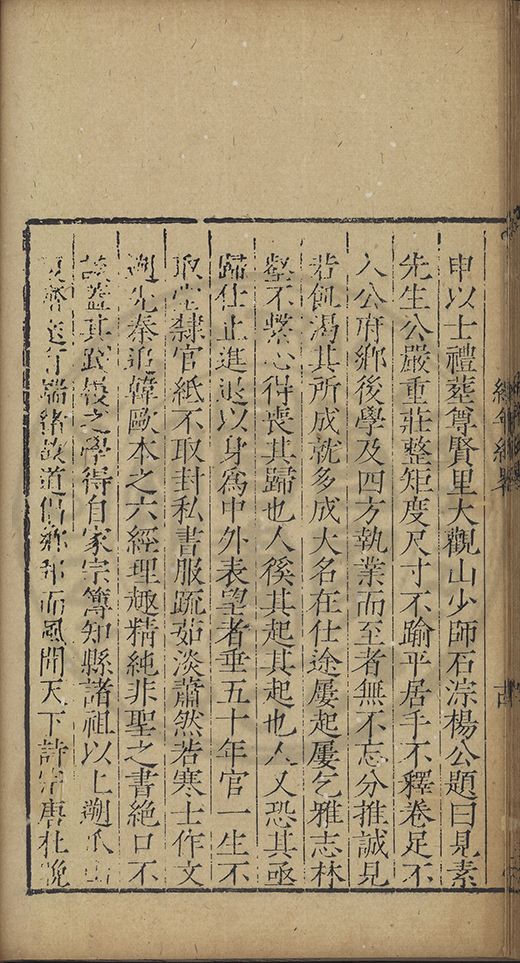 申以士禮塟尊賢里大觀山少師石淙楊公題曰見素
先生公嚴重莊整矩度尺寸不踰平居手不釋卷足不
入公府鄉後學及四方執業而至者無不忘分推誠見
若飢渴其所成就多成大名在仕途屢起屢乞雅志林
壑不繫心得喪其歸也人徯其起其起也人又恐其亟
歸仕止進退以身爲中外表望者垂五十年官一生不
取堂隷官紙不取封私書服疏茹淡蕭然若寒士作文
遡先秦追韓歐本之六經理趣精純非聖之書絶口不
蓋其踐履之學得自家宗簿知縣諸祖以上遡
端緒故道倡鄉邦而風聞天下詩宗唐杜晚
編年紀畧